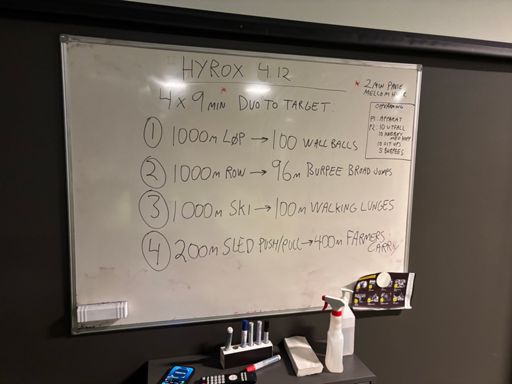 HYROX 4.12
* 2 MIN PAUSE
MELLOM HVER
4 x 9 MIN * DUO TO TARGET
OPPVARMING
P1: APPARAT
P2: 10 UTFALL
10 SIT UPS
5 BURPEES
1 1000M LØP → 100 WALL BALLS
2 1000M ROW → 96M BURPEE BROAD JUMPS
3 1000M SKI → 100M WALKING LUNGES
4 200M SLED PUSH/PULL → 400M FARMERS
CARRY